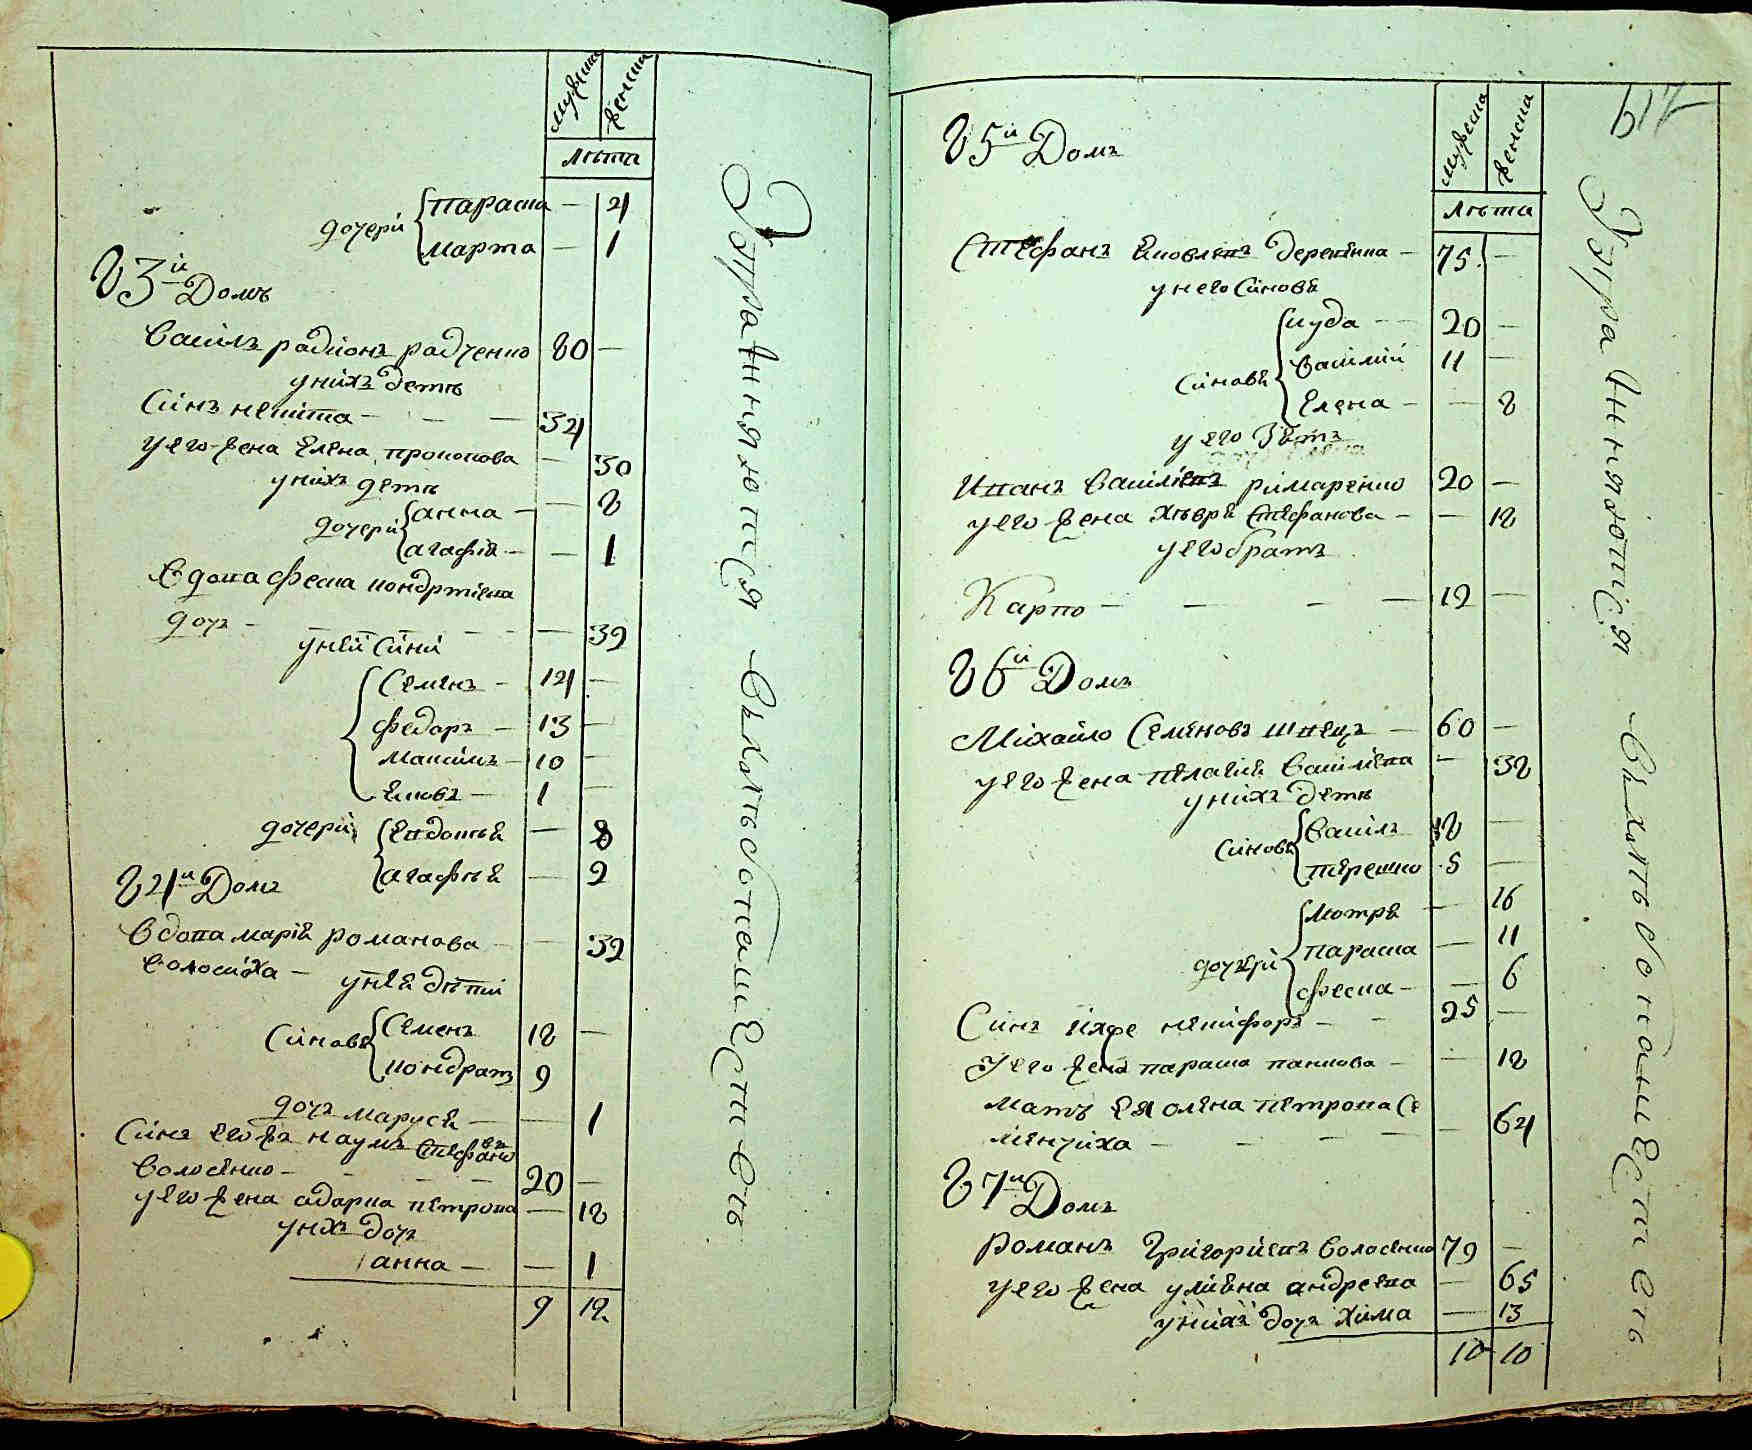 мужеска женска
лѣта
дочери параска — 4
марта — 1
83й Домъ
василъ радионъ радченко 80 —
унихъ дети
Синъ никита — — — 34
у его жена Елена, прокопова — 30
унихъ дети
дочери анна — — 8
агафiя — — 1
вдова феска кондратiева
доч — — — — 39
уней Сини
Семенъ — 14 —
федоръ — 13 —
максимъ — 10 —
яковъ — 1 —
дочери Евдокия — 8
агафия — 9
84й Домъ
вдова мария романова — — 39
волосиха — уней дѣти
Синовя Семенъ 18 —
кондратъ 9
доч маруся — — 1
Синъ его жъ наумъ Стефановъ
волосѣнко — — — — 20 —
у его жена одарка петрова — 18
унихъ доч
анна — — 1
9 12
мужеска женска
лѣта
85й Домъ
Стефанъ яковлевъ — 75 —
унего Синовя
Синовя иуда — 20 —
василий 11 —
Елена — — 8
у его
Иванъ василиевъ римаренко 20 —
у его жена хивря Стефанова — — 18
у его братъ
Карпо — — — — 19 —
86й Домъ
Михайло Семеновъ швецъ — 60 —
у его жена пелагия василиева — 38
унихъ дети
Синовя василъ —
терешко 5 —
дочери мотря — 16
параска — 11
феска — — 6
Синъ никифоръ — — 25 —
у его жена параска павлова — — 18
мать олена петрова Се
менчиха — — — — — 64
87й Домъ
романъ Григориевъ волосѣнко 79 —
у его жена улияна андреева — 65
унихъ доч хима — 13
10 10